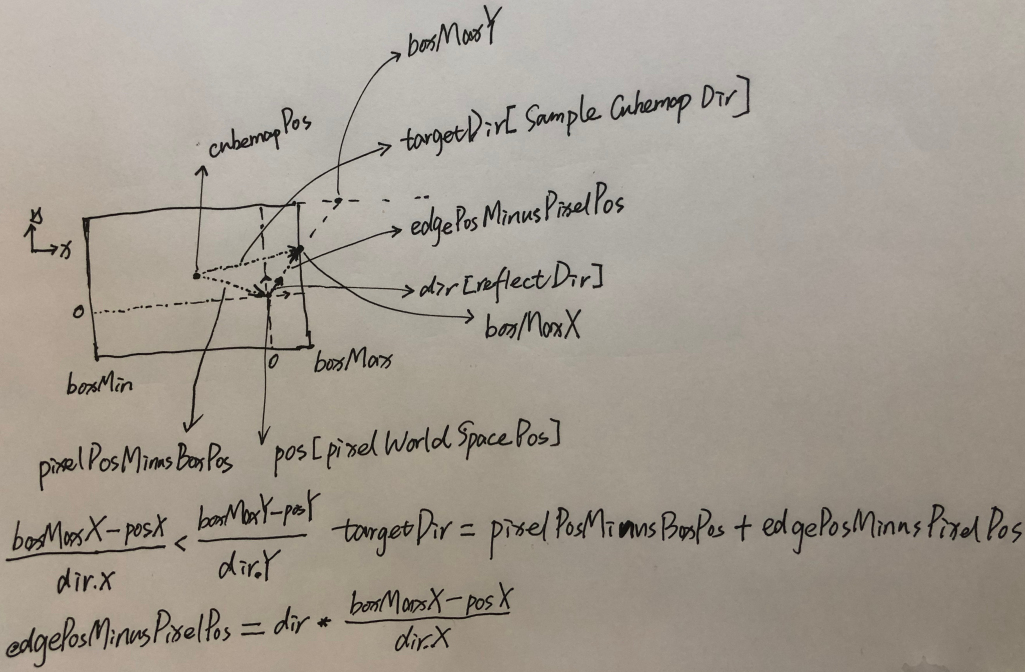 boxMaxY
cubemapPos
targetDir[Sample Cubemap Dir]
edgePosMinusPixelPos
y
x
dir[reflectDir]
0
boxMaxX
0
boxMax
boxMin
pixelPosMinusBoxPos
pos[pixelWorldSpacePos]
boxMaxX-posX / dir.X < boxMaxY-posY / dir.Y
targetDir = pixelPosMinusBoxPos + edgePosMinusPixelPos
edgePosMinusPixelPos = dir * boxMaxX-posX / dir.X